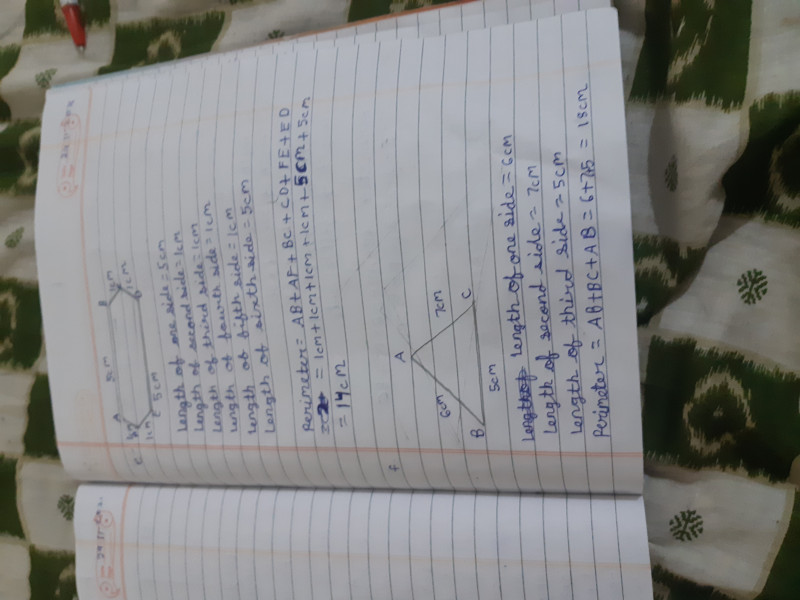 e
A 5cm B
1cm
1cm
1cm
E 5cm
Length of one side = 5cm
Length of second side = 1cm
Length of third side = 1cm
Length of fourth side = 1cm
Length of fifth side = 1cm
Length of sixth side = 5cm
Perimeter = AB + AF + BC + CD + FE + ED
= 1cm + 1cm + 1cm + 1cm + 5cm + 5cm
= 14cm
f
A
6cm 7cm
B C
5cm
Length of one side = 6cm
Length of second side = 7cm
Length of third side = 5cm
Perimeter = AB + BC + AB = 6 + 7 + 5 = 18cm